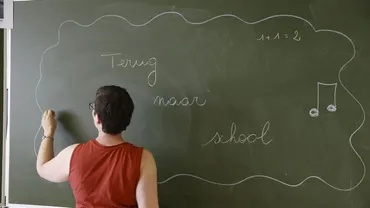 1+1=2
Terug
naar
school